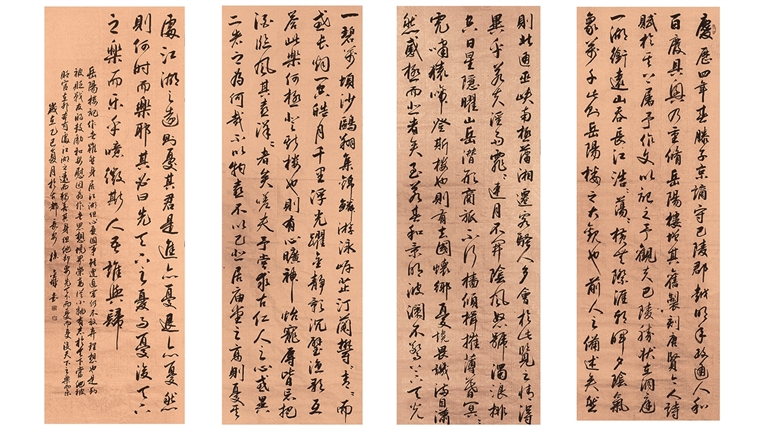 慶歷四年春滕子京謫守巴陵郡越明年政通人和
百廢具興乃重脩岳陽樓增其舊製刻唐賢今人詩
賦於其上屬予作文以記之予觀夫巴陵勝狀在洞庭
一湖銜遠山吞長江浩〻蕩〻橫無際涯朝暉夕陰氣
象萬千此則岳陽樓之大觀也前人之備述矣然
則北通巫峽南極瀟湘遷客騷人多會於此覽之情得
異乎若夫淫雨霏〻連月不開陰風怒號濁浪排
空日星隱曜山岳潛形商旅不行檣傾楫摧薄暮冥〻
虎嘯猿啼登斯樓也則有去國懷鄉憂讒畏譏滿目蕭
然感極而悲者矣至若春和景明波瀾不驚上下天光
一碧萬頃沙鷗翔集錦鱗游泳岸芷汀蘭鬱〻青〻而
或長煙一空皓月千里浮光躍金靜影沉璧漁歌互
答此樂何極登斯樓也則有心曠神怡寵辱皆忘把
酒臨風其喜洋〻者矣嗟夫予嘗求古仁人之心或異
二者之為何哉不以物喜不以己悲居廟堂之高則憂其
處江湖之遠則憂其君是進亦憂退亦憂然
則何時而樂耶其必曰先天下之憂而憂後天下
之樂而乐乎噫微斯人吾誰與歸
岳陽樓記作者雖身居江湖但心憂國事雖遭迫害仍不放棄理想
歲在乙巳